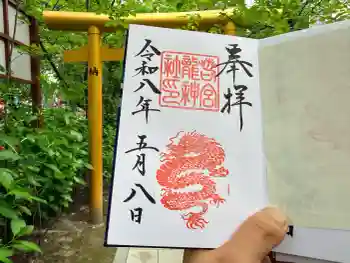 奉拝
宮
龍神
社印
令和八年
五月八日
納